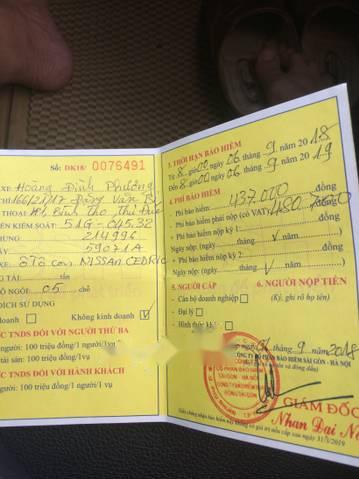 Số: DK18/ 0076491
XE: Hoàng Đình Phương
CHỈ: 166/21/17 Đặng Văn Bi
THOẠI: P. Bình Thọ, Thủ Đức
IỂN KIỂM SOÁT: 51G-045.32
HUNG 214996
ÁY 59071A
XE: Ô Tô Con, NISSAN CEDRIC
G TẢI: tấn
Ố NGỒI: 05 chỗ
ĐÍCH SỬ DỤNG
doanh Không kinh doanh
ỨC TNDS ĐỐI VỚI NGƯỜI THỨ BA
người: 100 triệu đồng/1 người/vụ
tài sản: 100 triệu đồng/1 vụ
ỨC TNDS ĐỐI VỚI HÀNH KHÁCH
người: 100 triệu đồng/1 người/1 vụ
3. THỜI HẠN BẢO HIỂM
Từ 8 giờ 00 ngày 06 tháng 9 năm 2018
Đến 8 giờ 00 ngày 06 tháng 9 năm 2019
4. PHÍ BẢO HIỂM
- Phí bảo hiểm: 437.000 đồng
- Phí bảo hiểm phải nộp (có VAT): 480.700 đồng
- Phí bảo hiểm nộp kỳ 1: đồng
Ngày nộp: (ngày tháng năm)
- Phí bảo hiểm nộp kỳ 2: đồng
Ngày nộp: (ngày tháng năm)
5. NGƯỜI CẤP
- Cán bộ doanh nghiệp
- Đại lý
- Hình thức khác
6. NGƯỜI NỘP TIỀN
(Ký, ghi rõ họ tên)
06 tháng 9 năm 2018
CÔNG TY CỔ PHẦN BẢO HIỂM SÀI GÒN - HÀ NỘI
GIÁM ĐỐC
Phan Đại N